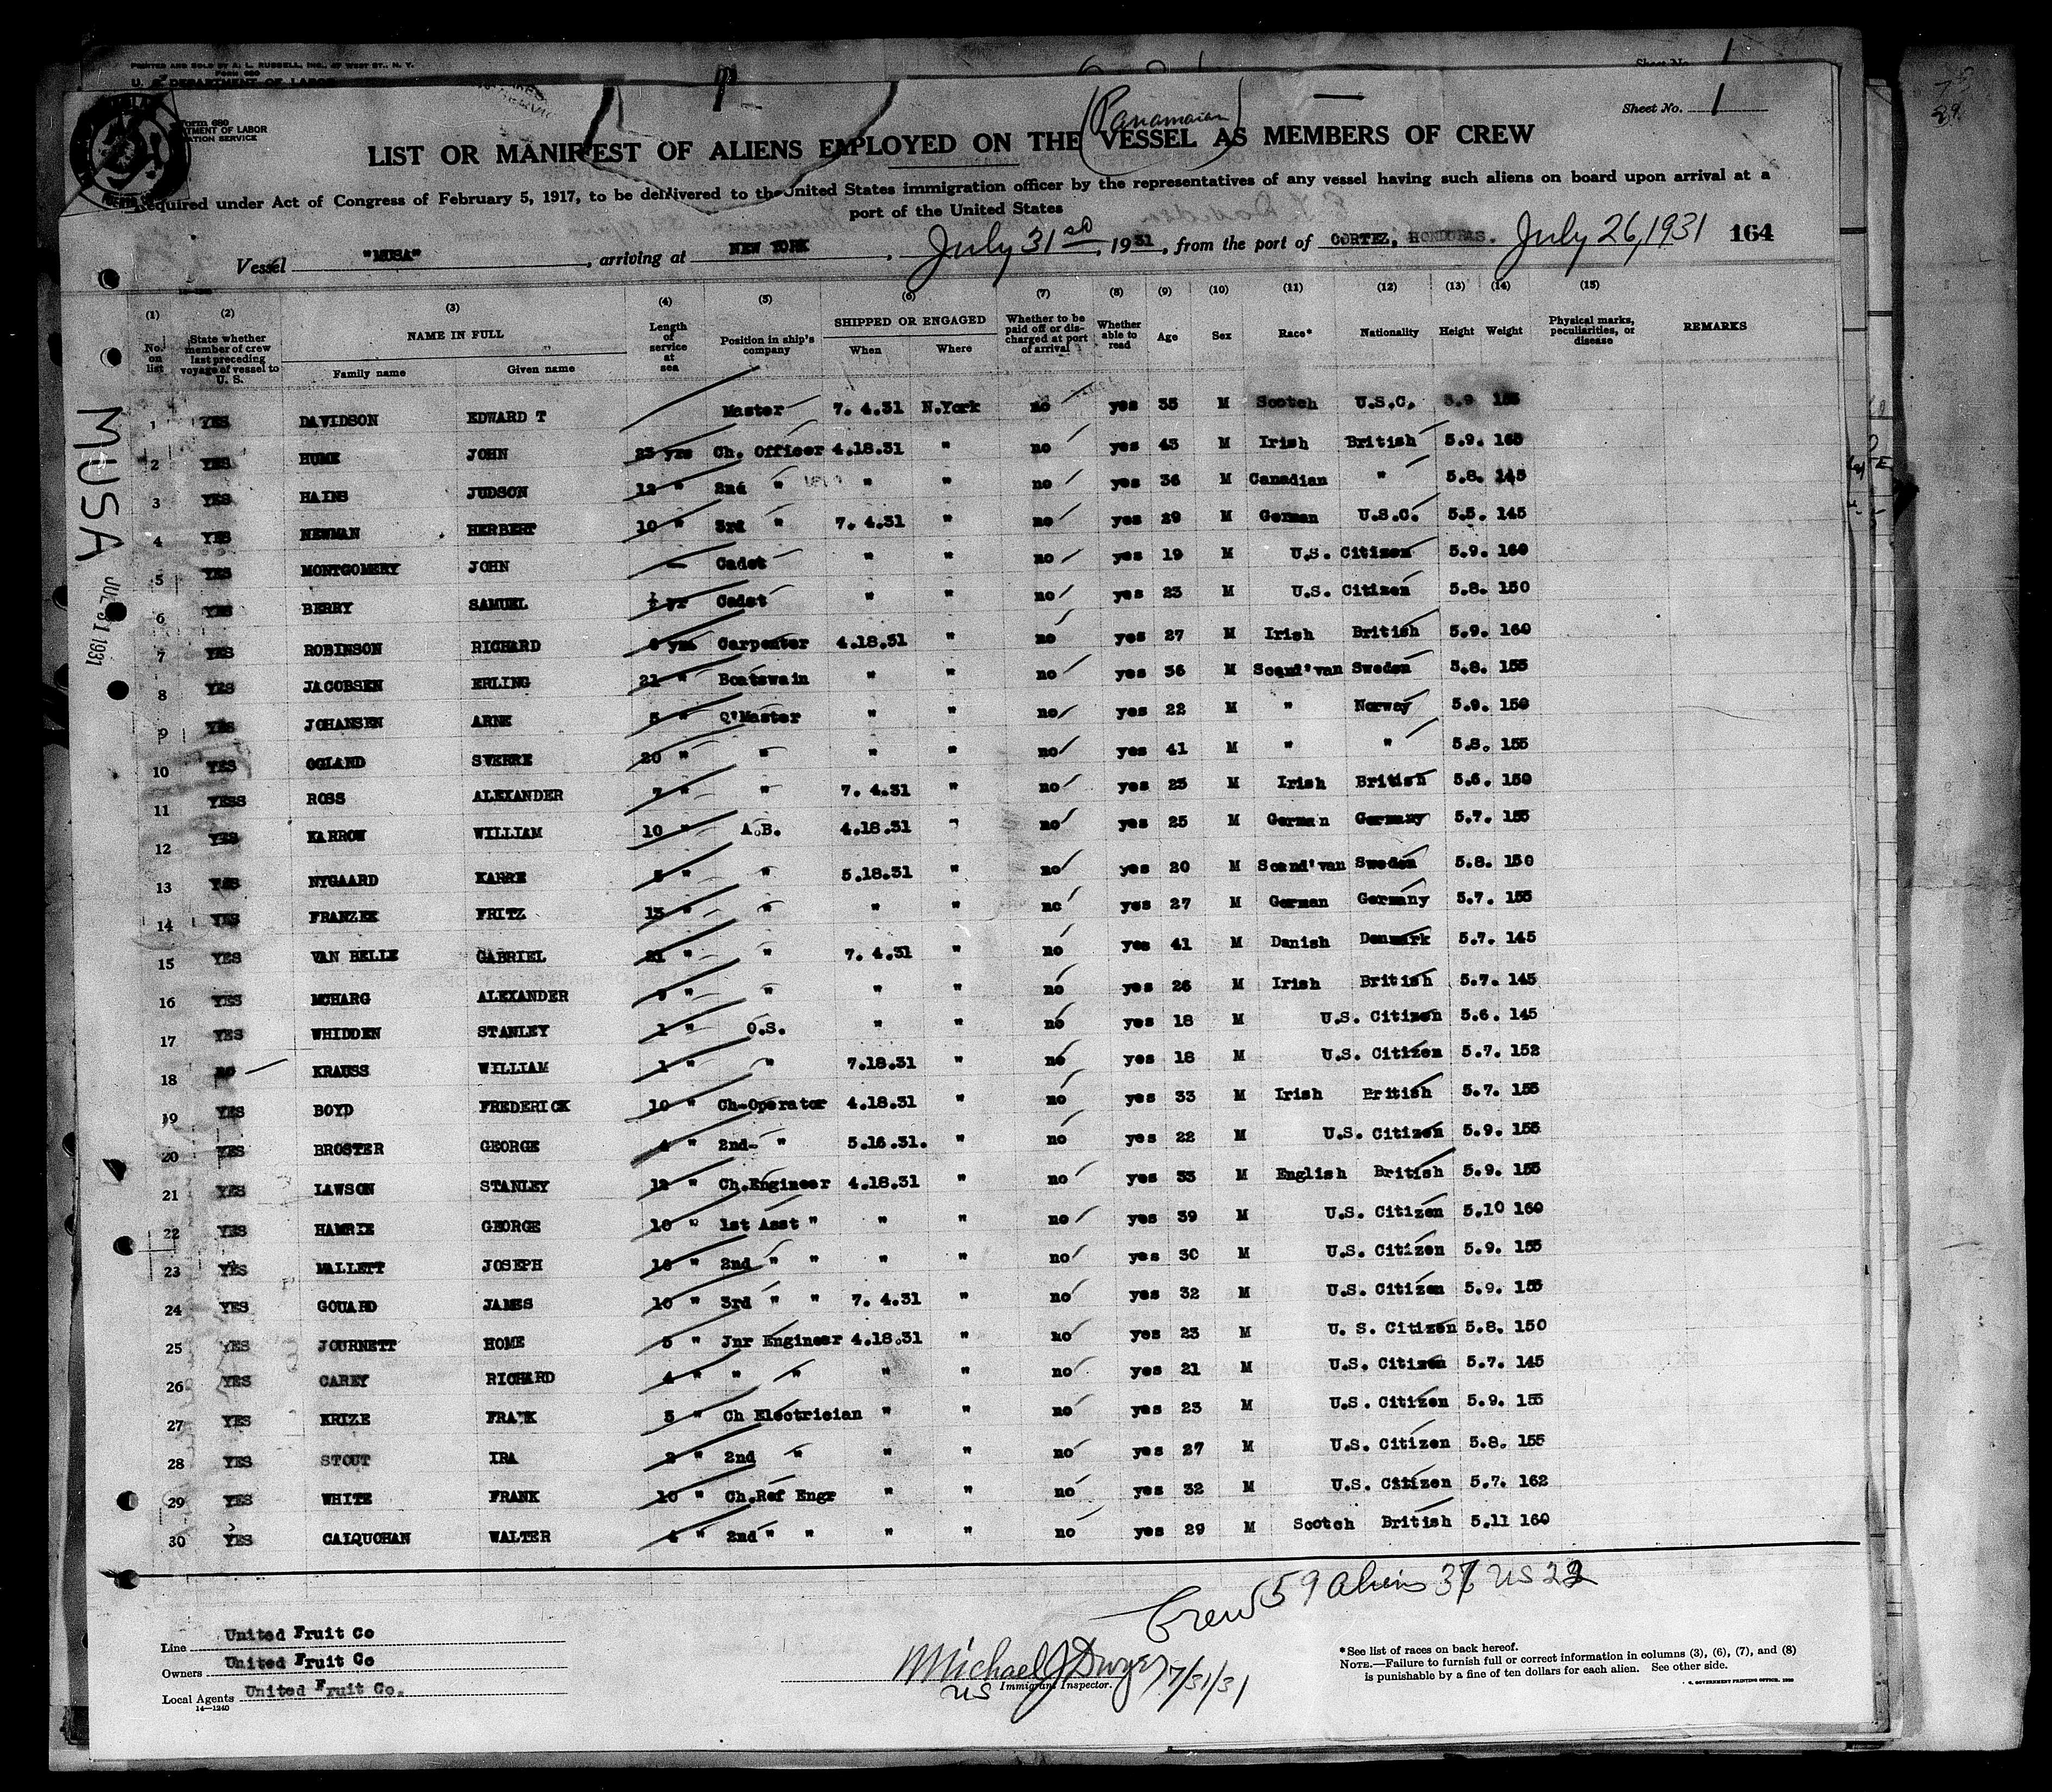 PRINTED AND SOLD BY A. L. RUSSELL, INC., 47 WEST ST., N. Y.
Form 680
U. S. DEPARTMENT OF LABOR
Sheet No. 1
Form 680
TMENT OF LABOR
ATION SERVICE
(Panamaian)
Sheet No. 1
LIST OR MANIFEST OF ALIENS EMPLOYED ON THE VESSEL AS MEMBERS OF CREW
Required under Act of Congress of February 5, 1917, to be delivered to the United States immigration officer by the representatives of any vessel having such aliens on board upon arrival at a
port of the United States
Vessel "MUSA", arriving at NEW YORK, July 31st, 1931, from the port of CORTEZ, HONDURAS. July 26, 1931 164
(1) (2) (3) (4) (5) (6) (7) (8) (9) (10) (11) (12) (13) (14) (15)
No. on list
State whether member of crew last preceding voyage of vessel to U. S.
NAME IN FULL
Family name
Given name
Length of service at sea
Position in ship's company
SHIPPED OR ENGAGED
When
Where
Whether to be paid off or discharged at port of arrival
Whether able to read
Age
Sex
Race*
Nationality
Height
Weight
Physical marks, peculiarities, or disease
REMARKS
MUSA
JUL 31 1931
1 YES DAVIDSON EDWARD T Master 7. 4.31 N.York no yes 35 M Scotch U.S.C. 5.9 155
2 YES HUME JOHN 23 yrs Ch. Officer 4.18.31 " no yes 43 M Irish British 5.9. 165
3 YES HAINS JUDSON 12 " 2nd " " " no yes 36 M Canadian " 5.8. 145
4 YES NEWMAN HERBERT 10 " 3rd " 7. 4.31 " no yes 29 M German U.S.C. 5.5. 145
5 YES MONTGOMERY JOHN — Cadet " " no yes 19 M U.S. Citizen 5.9. 160
6 YES BERRY SAMUEL ½ yr Cadet " " no yes 23 M U.S. Citizen 5.8. 150
7 YES ROBINSON RICHARD 6 yrs Carpenter 4.18.31 " no yes 27 M Irish British 5.9. 160
8 YES JACOBSEN ERLING 21 " Boatswain " " no yes 36 M Scand'van Sweden 5.8. 155
9 YES JOHANSEN ARNE 5 " Q'Master " " no yes 22 M " Norway 5.9. 150
10 YES OGLAND SVERRE 20 " " " " no yes 41 M " " 5.8. 155
11 YESS ROSS ALEXANDER 7 " " 7. 4.31 " no yes 23 M Irish British 5.6. 150
12 YES KARROW WILLIAM 10 " A.B. 4.18.31 " no yes 25 M German Germany 5.7. 155
13 YES NYGAARD KARRE 3 " " 5.18.31 " no yes 20 M Scand'van Sweden 5.8. 150
14 YES FRANZEK FRITZ 13 " " " " no yes 27 M German Germany 5.7. 155
15 YES VAN BELLE GABRIEL 21 " " 7. 4.31 " no yes 41 M Danish Denmark 5.7. 145
16 YES MCHARG ALEXANDER 9 " " " " no yes 26 M Irish British 5.7. 145
17 YES WHIDDEN STANLEY 1 " O.S. " " no yes 18 M U.S. Citizen 5.6. 145
18 NO KRAUSS WILLIAM 1 " " 7.18.31 " no yes 18 M U.S. Citizen 5.7. 152
19 YES BOYD FREDERICK 10 " Ch-Operator 4.18.31 " no yes 33 M Irish British 5.7. 155
20 YES BROSTER GEORGE 4 " 2nd- " 5.16.31. " no yes 22 M U.S. Citizen 5.9. 155
21 YES LAWSON STANLEY 12 " Ch.Engineer 4.18.31 " no yes 33 M English British 5.9. 155
22 YES HAMRIE GEORGE 10 " 1st Asst " " " no yes 39 M U.S. Citizen 5.10 160
23 YES MALLETT JOSEPH 10 " 2nd " " " " no yes 30 M U.S. Citizen 5.9. 155
24 YES GOUARD JAMES 10 " 3rd " " 7. 4.31 " no yes 32 M U.S. Citizen 5.9. 155
25 YES JOURNETT HOME 5 " Jnr Engineer 4.18.31 " no yes 23 M U. S. Citizen 5.8. 150
26 YES CAREY RICHARD 4 " " " " " no yes 21 M U.S. Citizen 5.7. 145
27 YES KRIZE FRANK 5 " Ch Electrician " " no yes 23 M U.S. Citizen 5.9. 155
28 YES STOUT IRA 2 " 2nd " " " no yes 27 M U.S. Citizen 5.8. 155
29 YES WHITE FRANK 10 " Ch.Ref Engr " " no yes 32 M U.S. Citizen 5.7. 162
30 YES CALQUOHAN WALTER 4 " 2nd " " " " no yes 29 M Scotch British 5.11 160
Crew 59 Aliens 37 US 22
Line United Fruit Co
Owners United Fruit Co
Local Agents United Fruit Co.
14—1240
Michael J Dwyer 7/31/31
US Immigrant Inspector.
*See list of races on back hereof.
NOTE.—Failure to furnish full or correct information in columns (3), (6), (7), and (8)
is punishable by a fine of ten dollars for each alien. See other side.
U. S. GOVERNMENT PRINTING OFFICE. 1930